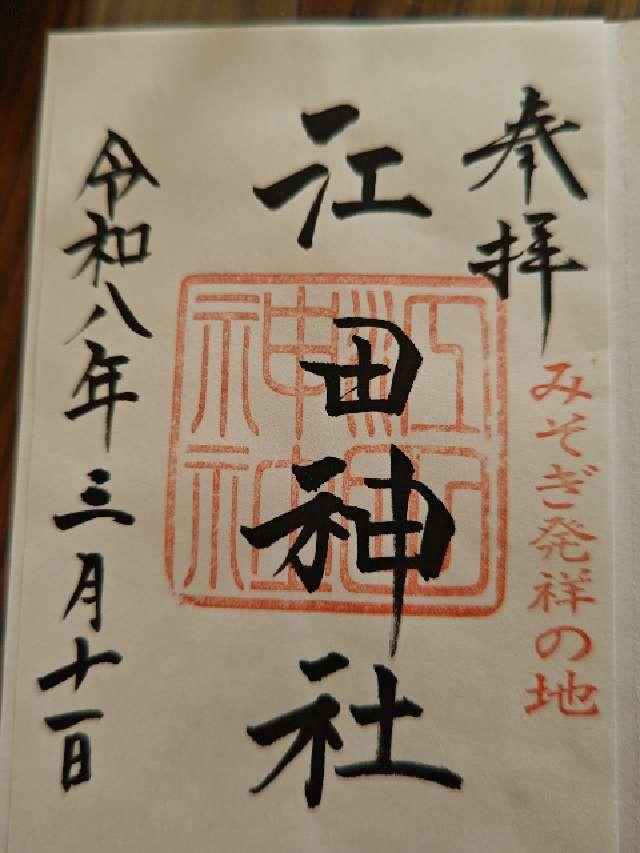 奉拝
みそぎ発祥の地
江田神社
江田神社
令和八年三月十一日